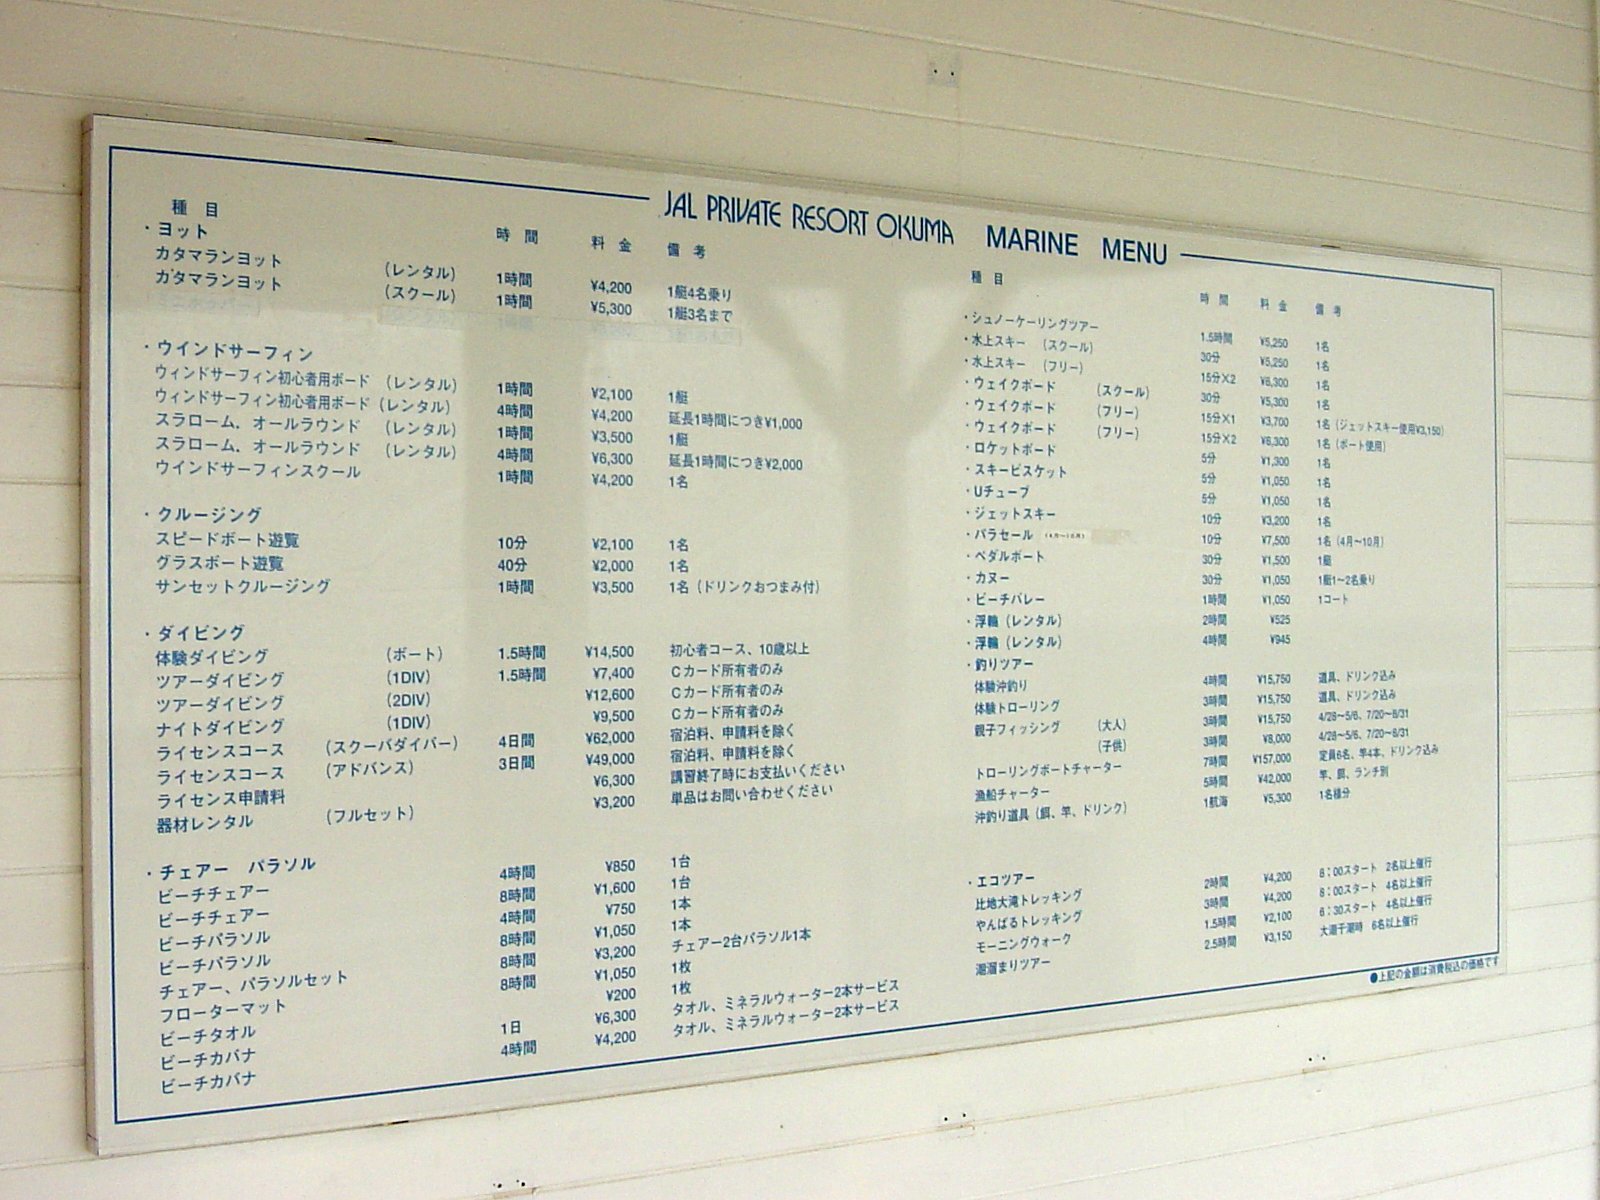 JAL PRIVATE RESORT OKUMA MARINE MENU
種目 時間 料金 備考
・ヨット
カタマランヨット (レンタル) 1時間 ¥4,200 1艇4名乗り
カタマランヨット (スクール) 1時間 ¥5,300 1艇3名まで
・ウインドサーフィン
ウィンドサーフィン初心者用ボード (レンタル) 1時間 ¥2,100 1艇
ウィンドサーフィン初心者用ボード (レンタル) 4時間 ¥4,200 延長1時間につき¥1,000
スラローム．オールラウンド (レンタル) 1時間 ¥3,500 1艇
スラローム．オールラウンド (レンタル) 4時間 ¥6,300 延長1時間につき¥2,000
ウインドサーフィンスクール 1時間 ¥4,200 1名
・クルージング
スピードボート遊覧 10分 ¥2,100 1名
グラスボート遊覧 40分 ¥2,000 1名
サンセットクルージング 1時間 ¥3,500 1名（ドリンクおつまみ付）
・ダイビング
体験ダイビング (ボート) 1.5時間 ¥14,500 初心者コース、10歳以上
ツアーダイビング (1DIV) 1.5時間 ¥7,400 Cカード所有者のみ
ツアーダイビング (2DIV) ¥12,600 Cカード所有者のみ
ナイトダイビング (1DIV) ¥9,500 Cカード所有者のみ
ライセンスコース (スクーバダイバー) 4日間 ¥62,000 宿泊料、申請料を除く
ライセンスコース (アドバンス) 3日間 ¥49,000 宿泊料、申請料を除く
ライセンス申請料 ¥6,300 講習終了時にお支払いください
器材レンタル (フルセット) ¥3,200 単品はお問い合わせください
・チェアー パラソル
ビーチチェアー 4時間 ¥850 1台
ビーチチェアー 8時間 ¥1,600 1台
ビーチパラソル 4時間 ¥750 1本
ビーチパラソル 8時間 ¥1,050 1本
チェアー、パラソルセット 8時間 ¥3,200 チェアー2台パラソル1本
フローターマット 8時間 ¥1,050 1枚
ビーチタオル ¥200 1枚
ビーチカバナ 1日 ¥6,300 タオル、ミネラルウォーター2本サービス
ビーチカバナ 4時間 ¥4,200 タオル、ミネラルウォーター2本サービス
種目 時間 料金 備考
・シュノーケーリングツアー 1.5時間 ¥5,250 1名
・水上スキー (スクール) 30分 ¥5,250 1名
・水上スキー (フリー) 15分×2 ¥6,300 1名
・ウェイクボード (スクール) 30分 ¥5,300 1名
・ウェイクボード (フリー) 15分×1 ¥3,700 1名（ジェットスキー使用¥3,150）
・ウェイクボード (フリー) 15分×2 ¥6,300 1名（ボート使用）
・ロケットボード 5分 ¥1,300 1名
・スキービスケット 5分 ¥1,050 1名
・Uチューブ 5分 ¥1,050 1名
・ジェットスキー 10分 ¥3,200 1名
・パラセール (4月〜10月) 10分 ¥7,500 1名（4月〜10月）
・ペダルボート 30分 ¥1,500 1艇
・カヌー 30分 ¥1,050 1艇1〜2名乗り
・ビーチバレー 1時間 ¥1,050 1コート
・浮輪（レンタル） 2時間 ¥525
・浮輪（レンタル） 4時間 ¥945
・釣りツアー
体験沖釣り 4時間 ¥15,750 道具、ドリンク込み
体験トローリング 3時間 ¥15,750 道具、ドリンク込み
親子フィッシング (大人) 3時間 ¥15,750 4/28〜5/6、7/20〜8/31
(子供) 3時間 ¥8,000 4/28〜5/6、7/20〜8/31
トローリングボートチャーター 7時間 ¥157,000 定員6名、竿4本、ドリンク込み
漁船チャーター 5時間 ¥42,000 竿、餌、ランチ別
沖釣り道具（餌、竿、ドリンク） 1航海 ¥5,300 1名様分
・エコツアー
比地大滝トレッキング 2時間 ¥4,200 8：00スタート 2名以上催行
やんばるトレッキング 3時間 ¥4,200 8：00スタート 4名以上催行
モーニングウォーク 1.5時間 ¥2,100 6：30スタート 4名以上催行
潮溜まりツアー 2.5時間 ¥3,150 大潮干潮時 6名以上催行
●上記の金額は消費税込の価格です